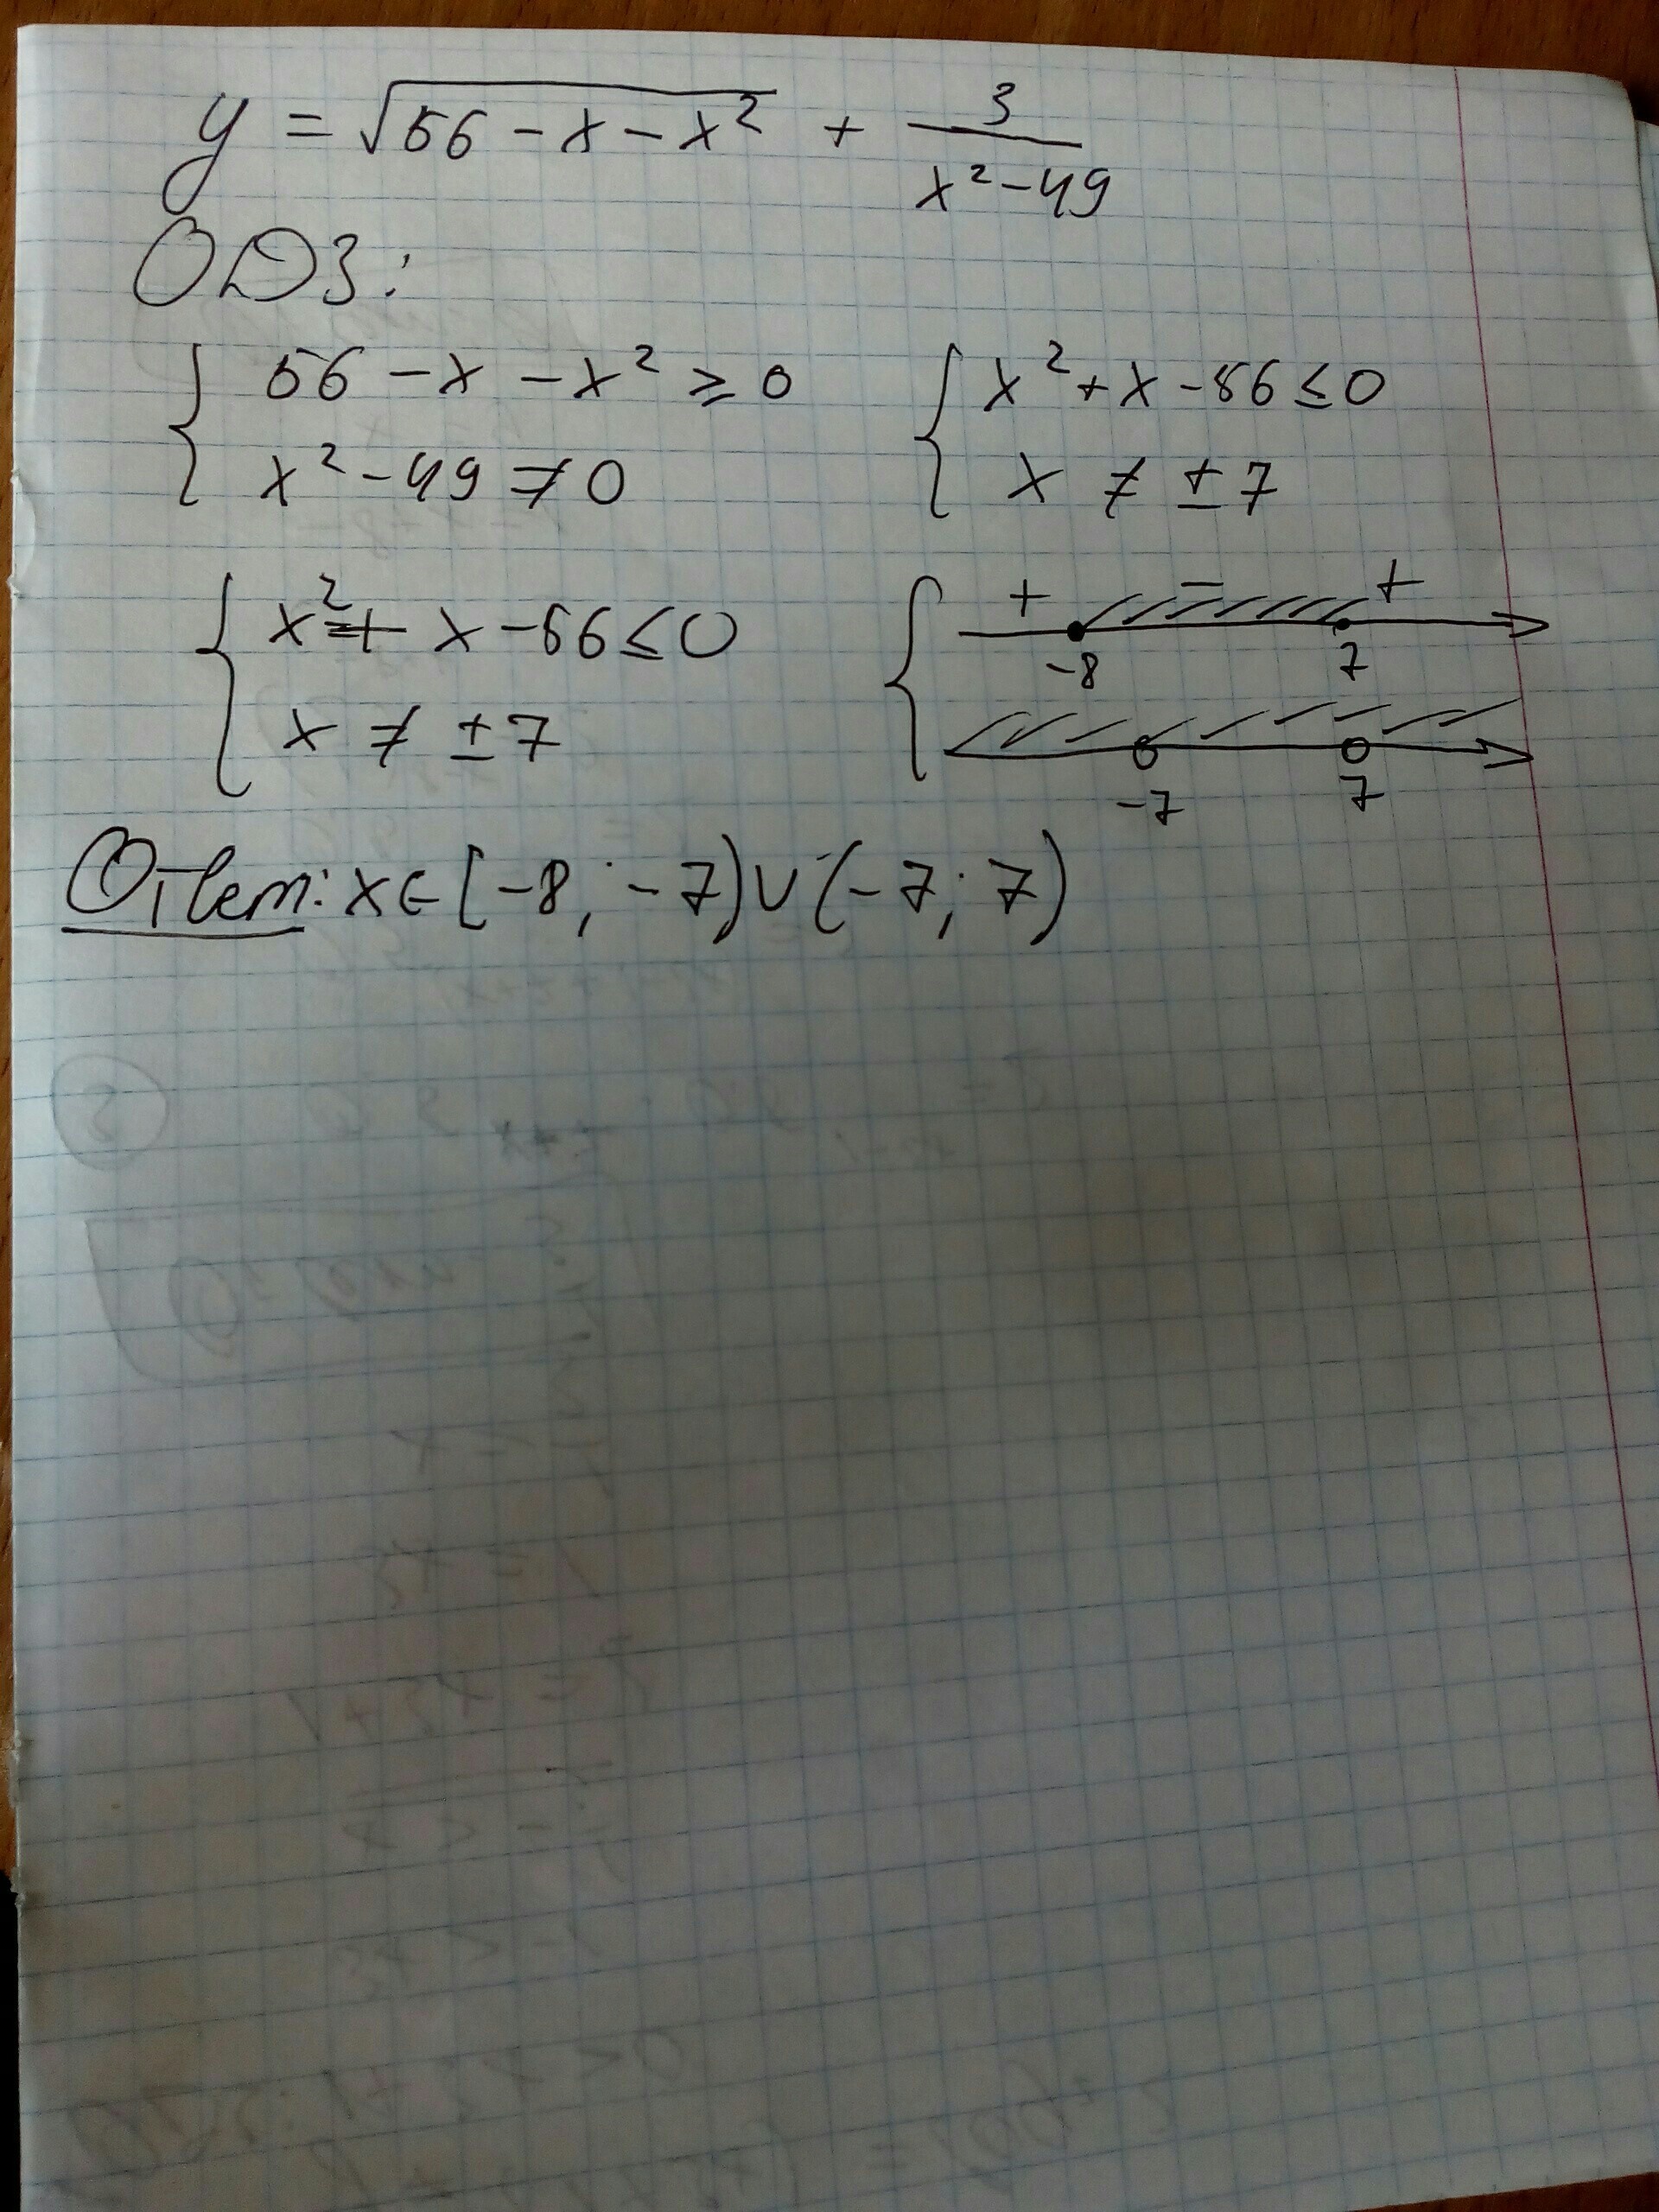 y = √(56 - x - x²) + 3/(x² - 49)
ОДЗ:
{ 56 - x - x² ≥ 0
x² - 49 ≠ 0
{ x² + x - 56 ≤ 0
x ≠ ± 7
{ x² + x - 56 ≤ 0
x ≠ ± 7
{ + - +
-8 7
-7 7
Ответ: x ∈ [-8; -7) ∪ (-7; 7)